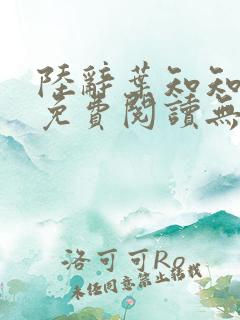 陸辭葉知知
免費閱讀無
洛可可Ro
未经同意禁止转载